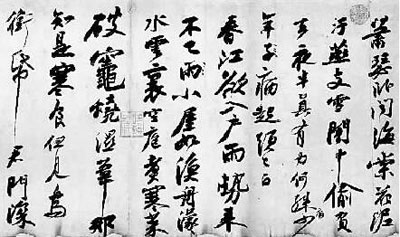 蕭瑟卧聞海棠花泥
污燕支雪闇中偷負
去夜半真有力何殊少
年子病起頭已白
春江欲入户雨勢來
不已雨小屋如漁舟濛〻
水雲裏空庖煮寒菜
破竈燒濕葦那
知是寒食但見烏
銜帋君門深